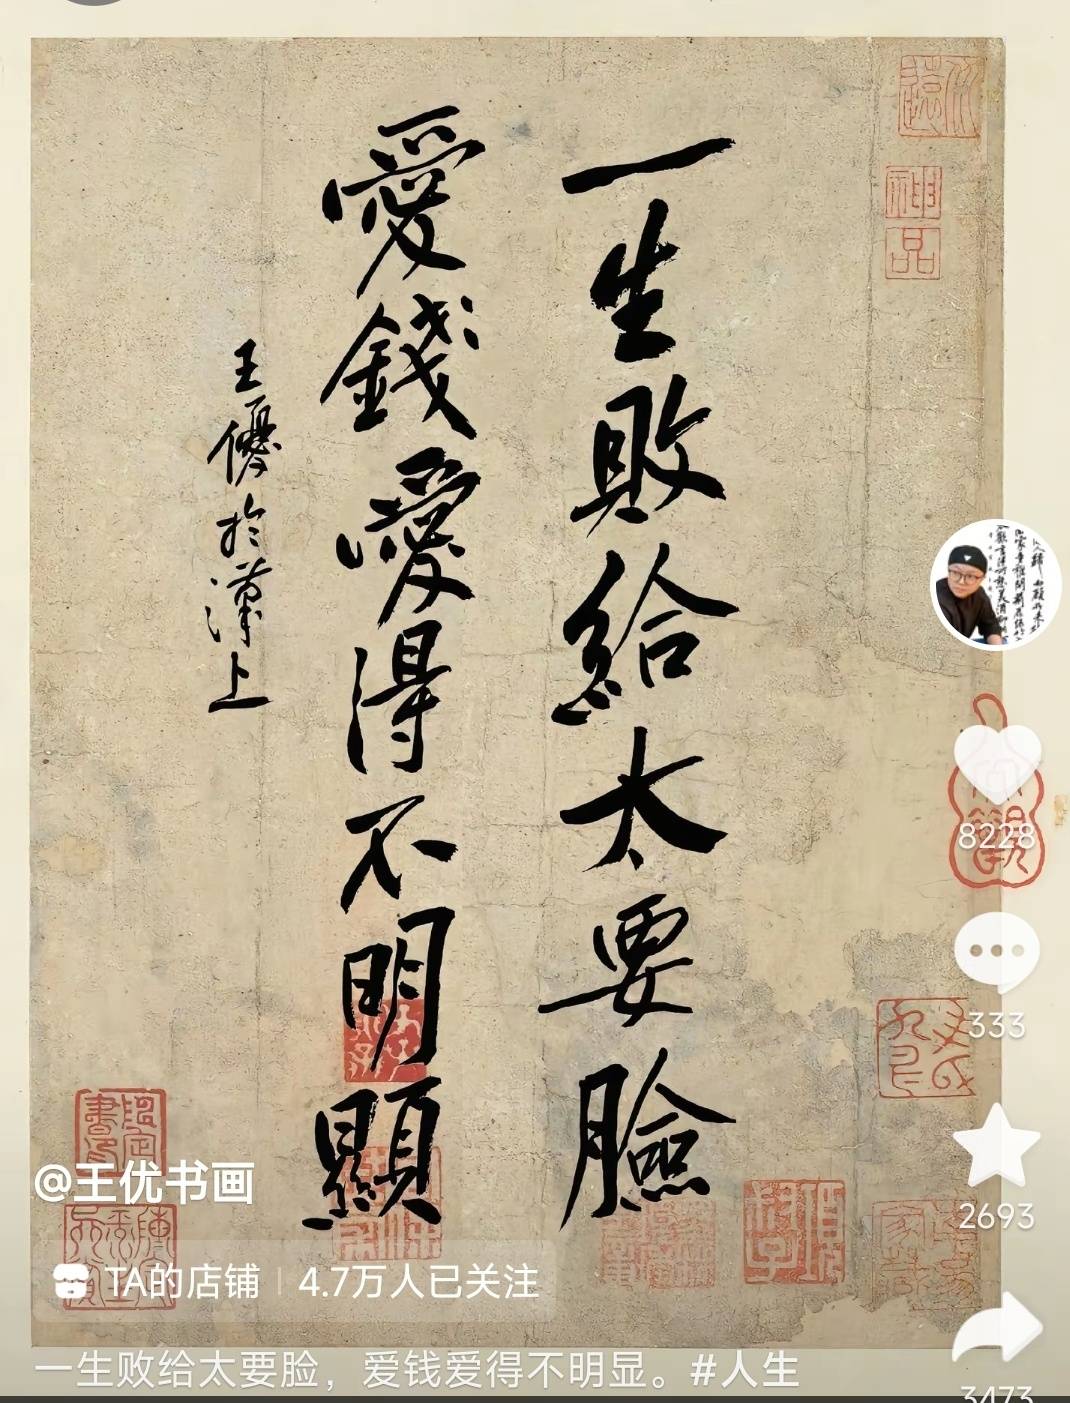 一生敗給太要臉
愛錢愛得不明顯
王優於漢上
神品
8228
333
2693
3473
@王优书画
TA的店铺 | 4.7万人已关注
一生败给太要脸，爱钱爱得不明显。#人生